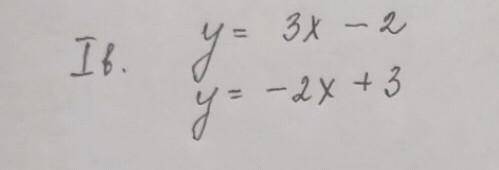 Iв.
y = 3x - 2
y = -2x + 3